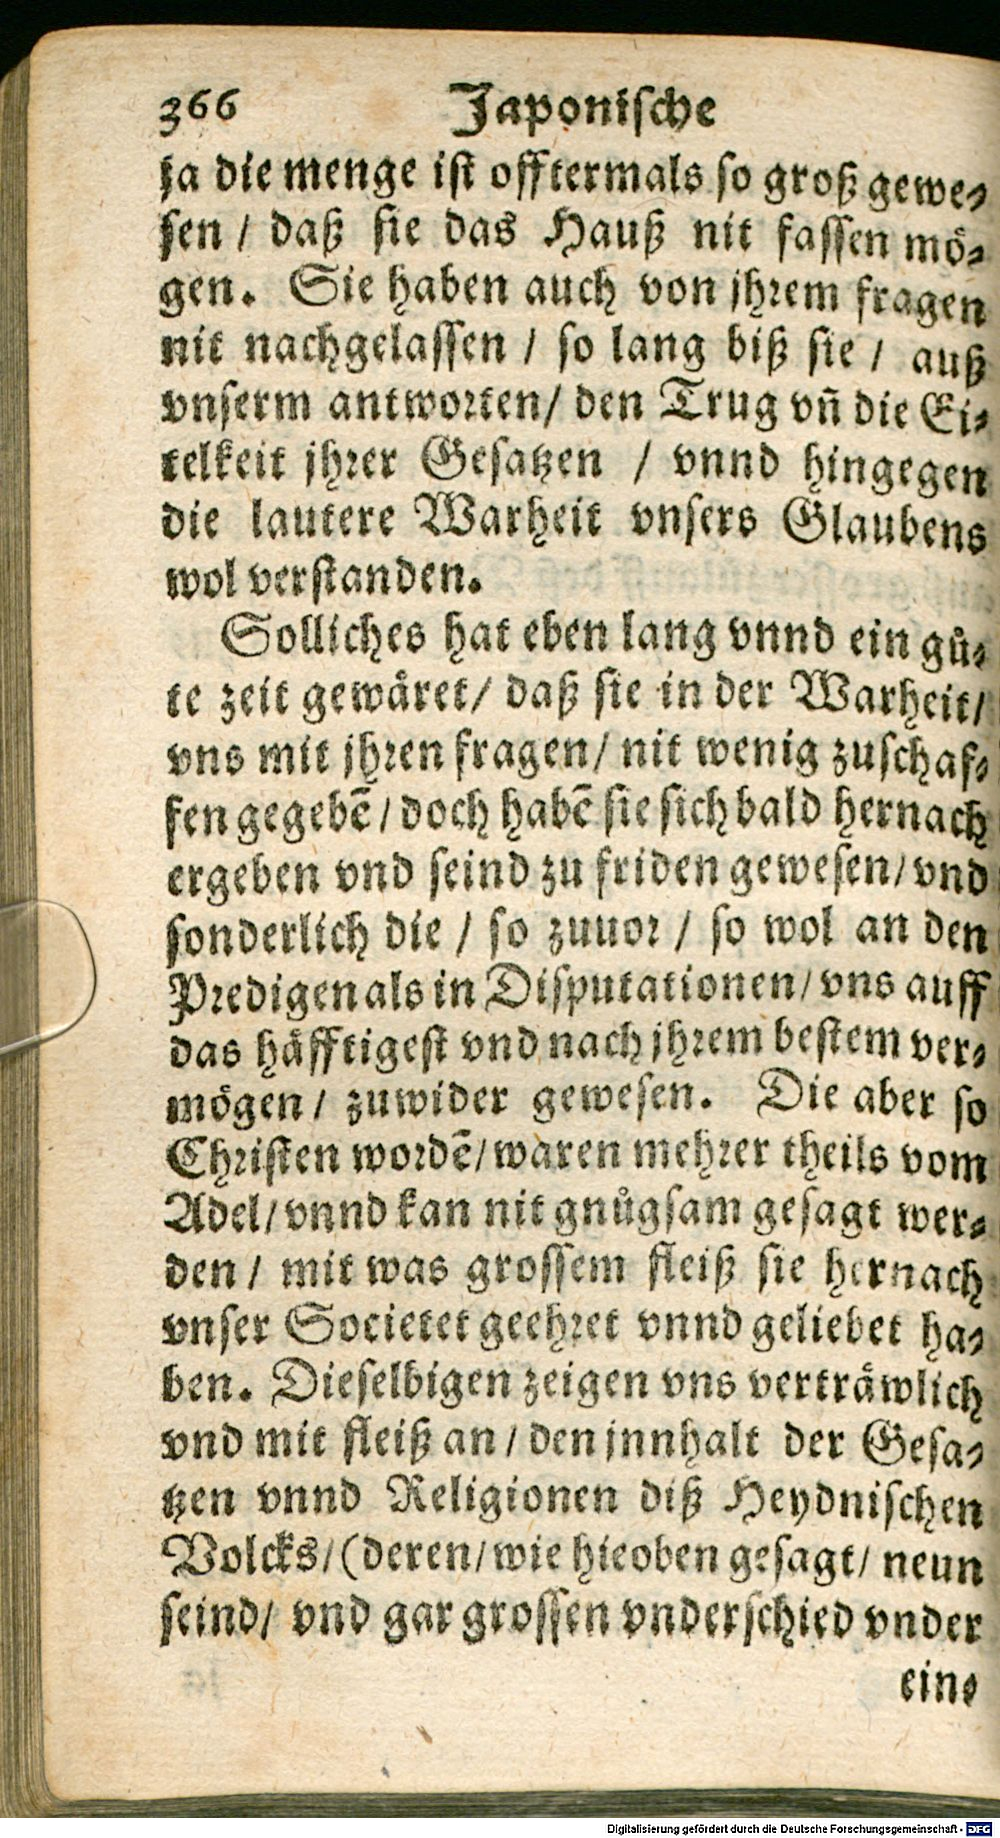 366 Japonische
ja die menge ist offtermals so groß gewe⸗
sen / daß sie das Hauß nit fassen mö⸗
gen. Sie haben auch von jhrem fragen
nit nachgelassen / so lang biß sie / auß
vnserm antworten/ den Trug vñ die Ei⸗
telkeit jhrer Gesatzen / vnnd hingegen
die lautere Warheit vnsers Glaubens
wol verstanden.
Solliches hat eben lang vnnd ein gů⸗
te zeit gewäret/ daß sie in der Warheit/
vns mit jhren fragen/ nit wenig zuschaf⸗
fen gegebẽ / doch habẽ sie sich bald hernach
ergeben vnd seind zu friden gewesen/ vnd
sonderlich die / so zuuor / so wol an den
Predigen als in Disputationen/ vns auff
das häfftigest vnd nach jhrem bestem ver⸗
mögen / zuwider gewesen. Die aber so
Christen wordẽ/ waren mehrer theils vom
Adel/ vnnd kan nit gnůgsam gesagt wer⸗
den / mit was grossem fleiß sie hernach
vnser Societet geehret vnnd geliebet ha⸗
ben. Dieselbigen zeigen vns verträwlich
vnd mit fleiß an / den jnnhalt der Gesa⸗
tzen vnnd Religionen diß Heydnischen
Volcks/ (deren/ wie hieoben gesagt/ neun
seind/ vnd gar grossen vnderschied vnder
ein⸗
Digitalisierung gefördert durch die Deutsche Forschungsgemeinschaft - DFG